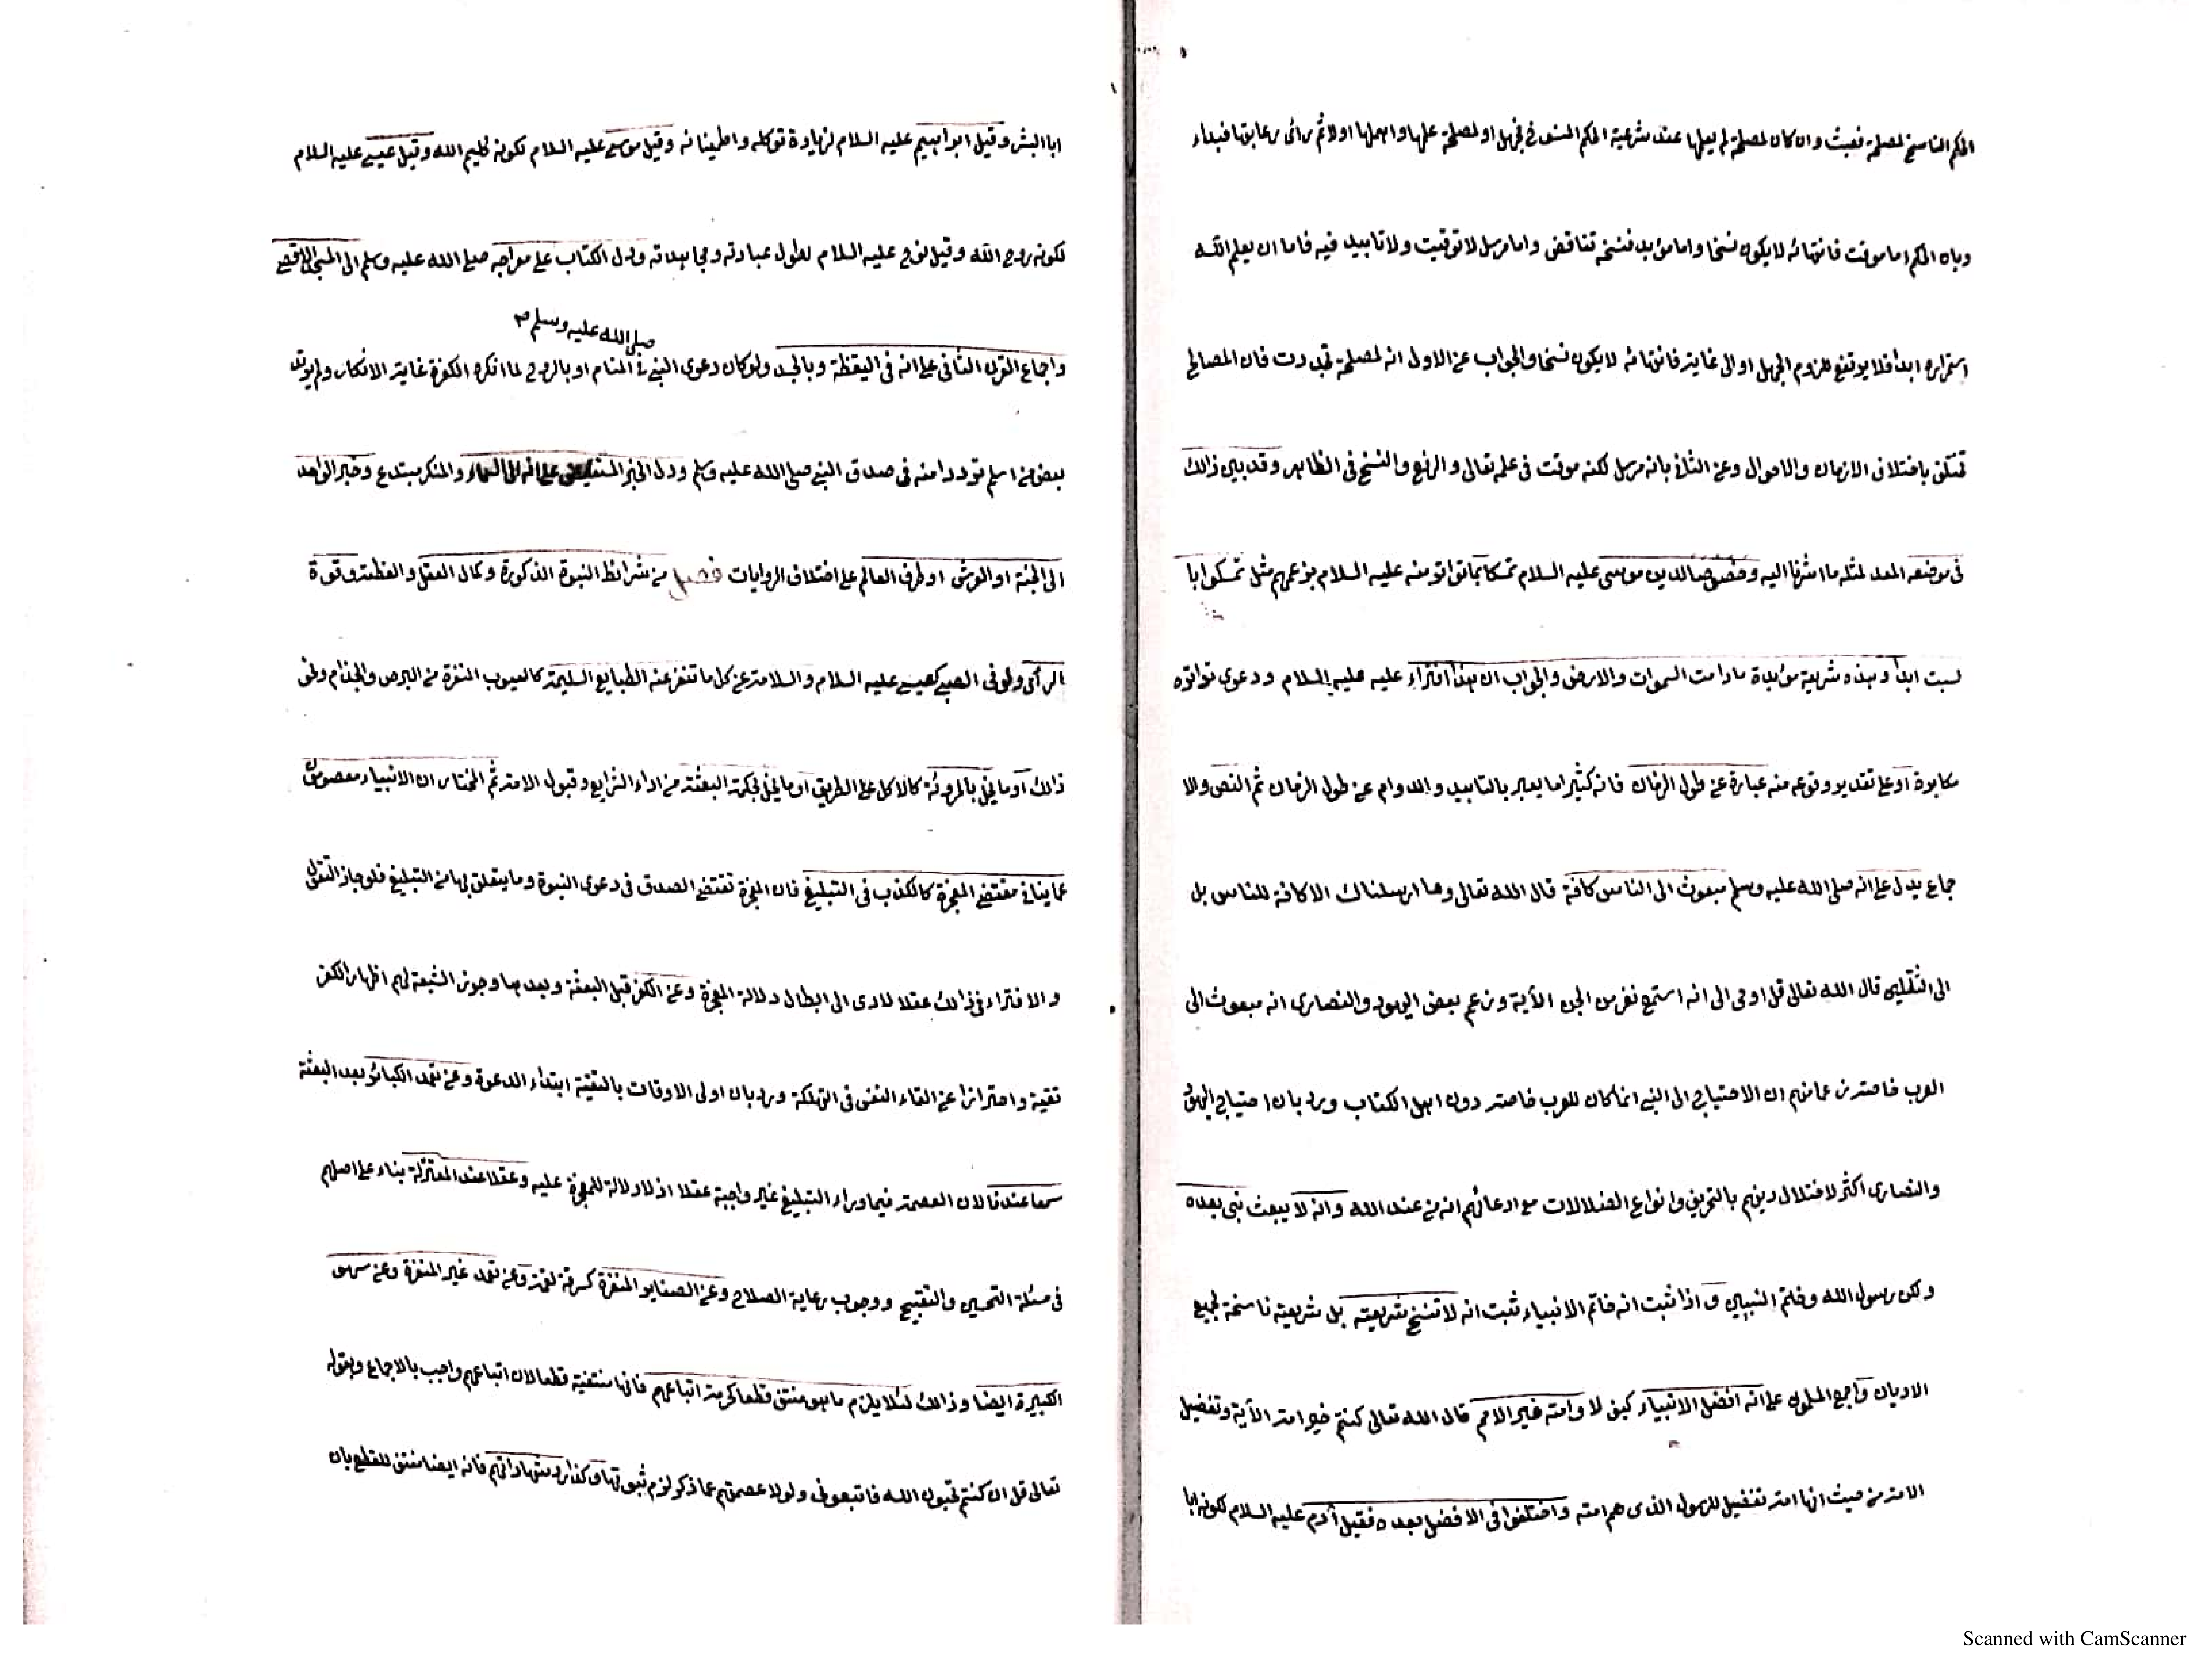 الحكم الناسخ لمصلحة فعبث وان كان لمصلحة لم يعلمها عند شرعية الحكم المنسوخ فجهل او لمصلحة علمها واهملها اولا ثم رأى رعايتها فبداء
وبان الحكم اما موقت فانتهائه لا يكون نسخا واما مؤبد فنسخه تناقض واما مرسل لا توقيت ولا تابيد فيه فاما ان يعلم الله
استمراره ابدا فلا يرتفع للزوم الجهل او الى غاية فانتهائه لا يكون نسخا والجواب عن الاول انه لمصلحة تجددت فان المصالح
تختلف باختلاف الازمان والاحوال وعن الثانى بانه مرسل لكنه موقت فى علمه تعالى والرفع والنسخ فى الظاهر وقد بين ذالك
فى موضعه المعد لمثله ما اشرنا اليه وخصوصا لدين موسى عليه السلام تمسكا بما تواتر منه عليه السلام بزعمهم مثل تمسكوا با
لسبت ابدا وهذه شريعة مؤبدة ما دامت السموات والارض والجواب ان هذا افتراء عليه عليه السلام ودعوى تواتره
مكابرة او على تقدير وقوعه منه عبارة عن طول الزمان فانه كثيرا ما يعبر بالتابيد والدوام عن طول الزمان ثم النص والا
جماع يدل على انه صلى الله عليه وسلم مبعوث الى الناس كافة قال الله تعالى وما ارسلناك الا كافة للناس بل
الى الثقلين قال الله تعالى قل اوحى الى انه استمع نفر من الجن الآية وزعم بعض اليهود والنصارى انه مبعوث الى
العرب خاصة زعما منهم ان الاحتياج الى النبى انما كان للعرب خاصة دون اهل الكتاب ورد بان احتياج اليهود
والنصارى اكثر لاختلال دينهم بالتحريف وانواع الضلالات مع ادعائهم انه من عند الله وانه لا يبعث نبى بعده
ولكن رسول الله وخاتم النبيين واذا ثبت انه خاتم الانبياء ثبت انه لا تنسخ شريعته بل شريعته ناسخة لجميع
الاديان واجمع المسلمون على انه افضل الانبياء كيف لا وامته خير الامم قال الله تعالى كنتم خير امة الآية وتفضيل
الامة من حيث انها امة تفضيل للرسول الذى هم امته واختلفوا فى الافضل بعده فقيل آدم عليه السلام لكونه ابا
ابا البشر وقيل ابراهيم عليه السلام لزيادة توكله واطمينانه وقيل موسى عليه السلام لكونه كليم الله وقيل عيسى عليه السلام
لكونه روح الله وقيل نوح عليه السلام لطول عبادته ومجاهدته ودل الكتاب على معراجه صلى الله عليه وسلم الى المسجد الاقصى
صلى الله عليه وسلم
واجماع القرن الثانى على انه فى اليقظة وبالجسد ولو كان دعوى النبى فى المنام او بالروح لما انكره الكفرة غاية الانكار ولم يرتد
بعض من اسلم ترددا منه فى صدق النبى صلى الله عليه وسلم ودل الخبر المستفيض على انه الى السماء والمنكر مبتدع وخبر الواحد
الى الجنة او العرش او طرف العالم على اختلاف الروايات فصل من شرائط النبوة الذكورة وكمال العقل والفطنة وقوة
الرأى ولو فى الصبى كعيسى عليه السلام والسلامة عن كل ما تنفر عنه الطبايع السليمة كالعيوب المنفرة من البرص والجذام ونحو
ذالك او ما يخل بالمروئة كالاكل على الطريق او ما يخل بحكمة البعثة من اداء الشرايع وقبول الامة ثم المختار ان الانبياء معصومون
عما ينافى مقتضى المعجزة كالكذب فى التبليغ فان المعجزة تقتضى الصدق فى دعوى النبوة وما يتعلق بها من التبليغ فلو جاز التقول
والافتراء فى ذالك عقلا لادى الى ابطال دلالة المعجزة وعن الكفر قبل البعثة وبعدها وجوز الشيعة لهم اظهار الكفر
تقية واحترازا عن القاء النفس فى التهلكة ورد بان اولى الاوقات بالتقية ابتداء الدعوة وعن تعمد الكبائر بعد البعثة
سمعا عندنا لان العصمة فيما وراء التبليغ غير واجبة عقلا اذ لا دلالة للمعجزة عليه وعقلا عند المعتزلة بناء على اصلهم
فى مسئلة التحسين والتقبيح ووجوب رعاية الصلاح وعن الصغاير المنفرة كسرقة لقمة وعن تعمد غير المنفرة وعن سهو
الكبيرة ايضا وذالك لئلا يلزم ما هو منتف قطعا كحرمة اتباعهم فانها منتفية قطعا لان اتباعهم واجب بالاجماع وبقوله
تعالى قل ان كنتم تحبون الله فاتبعونى ولولا عصمتهم عما ذكر لزم ثبوتها وكذا رد شهاداتهم فانه ايضا منتف للقطع بان
Scanned with CamScanner